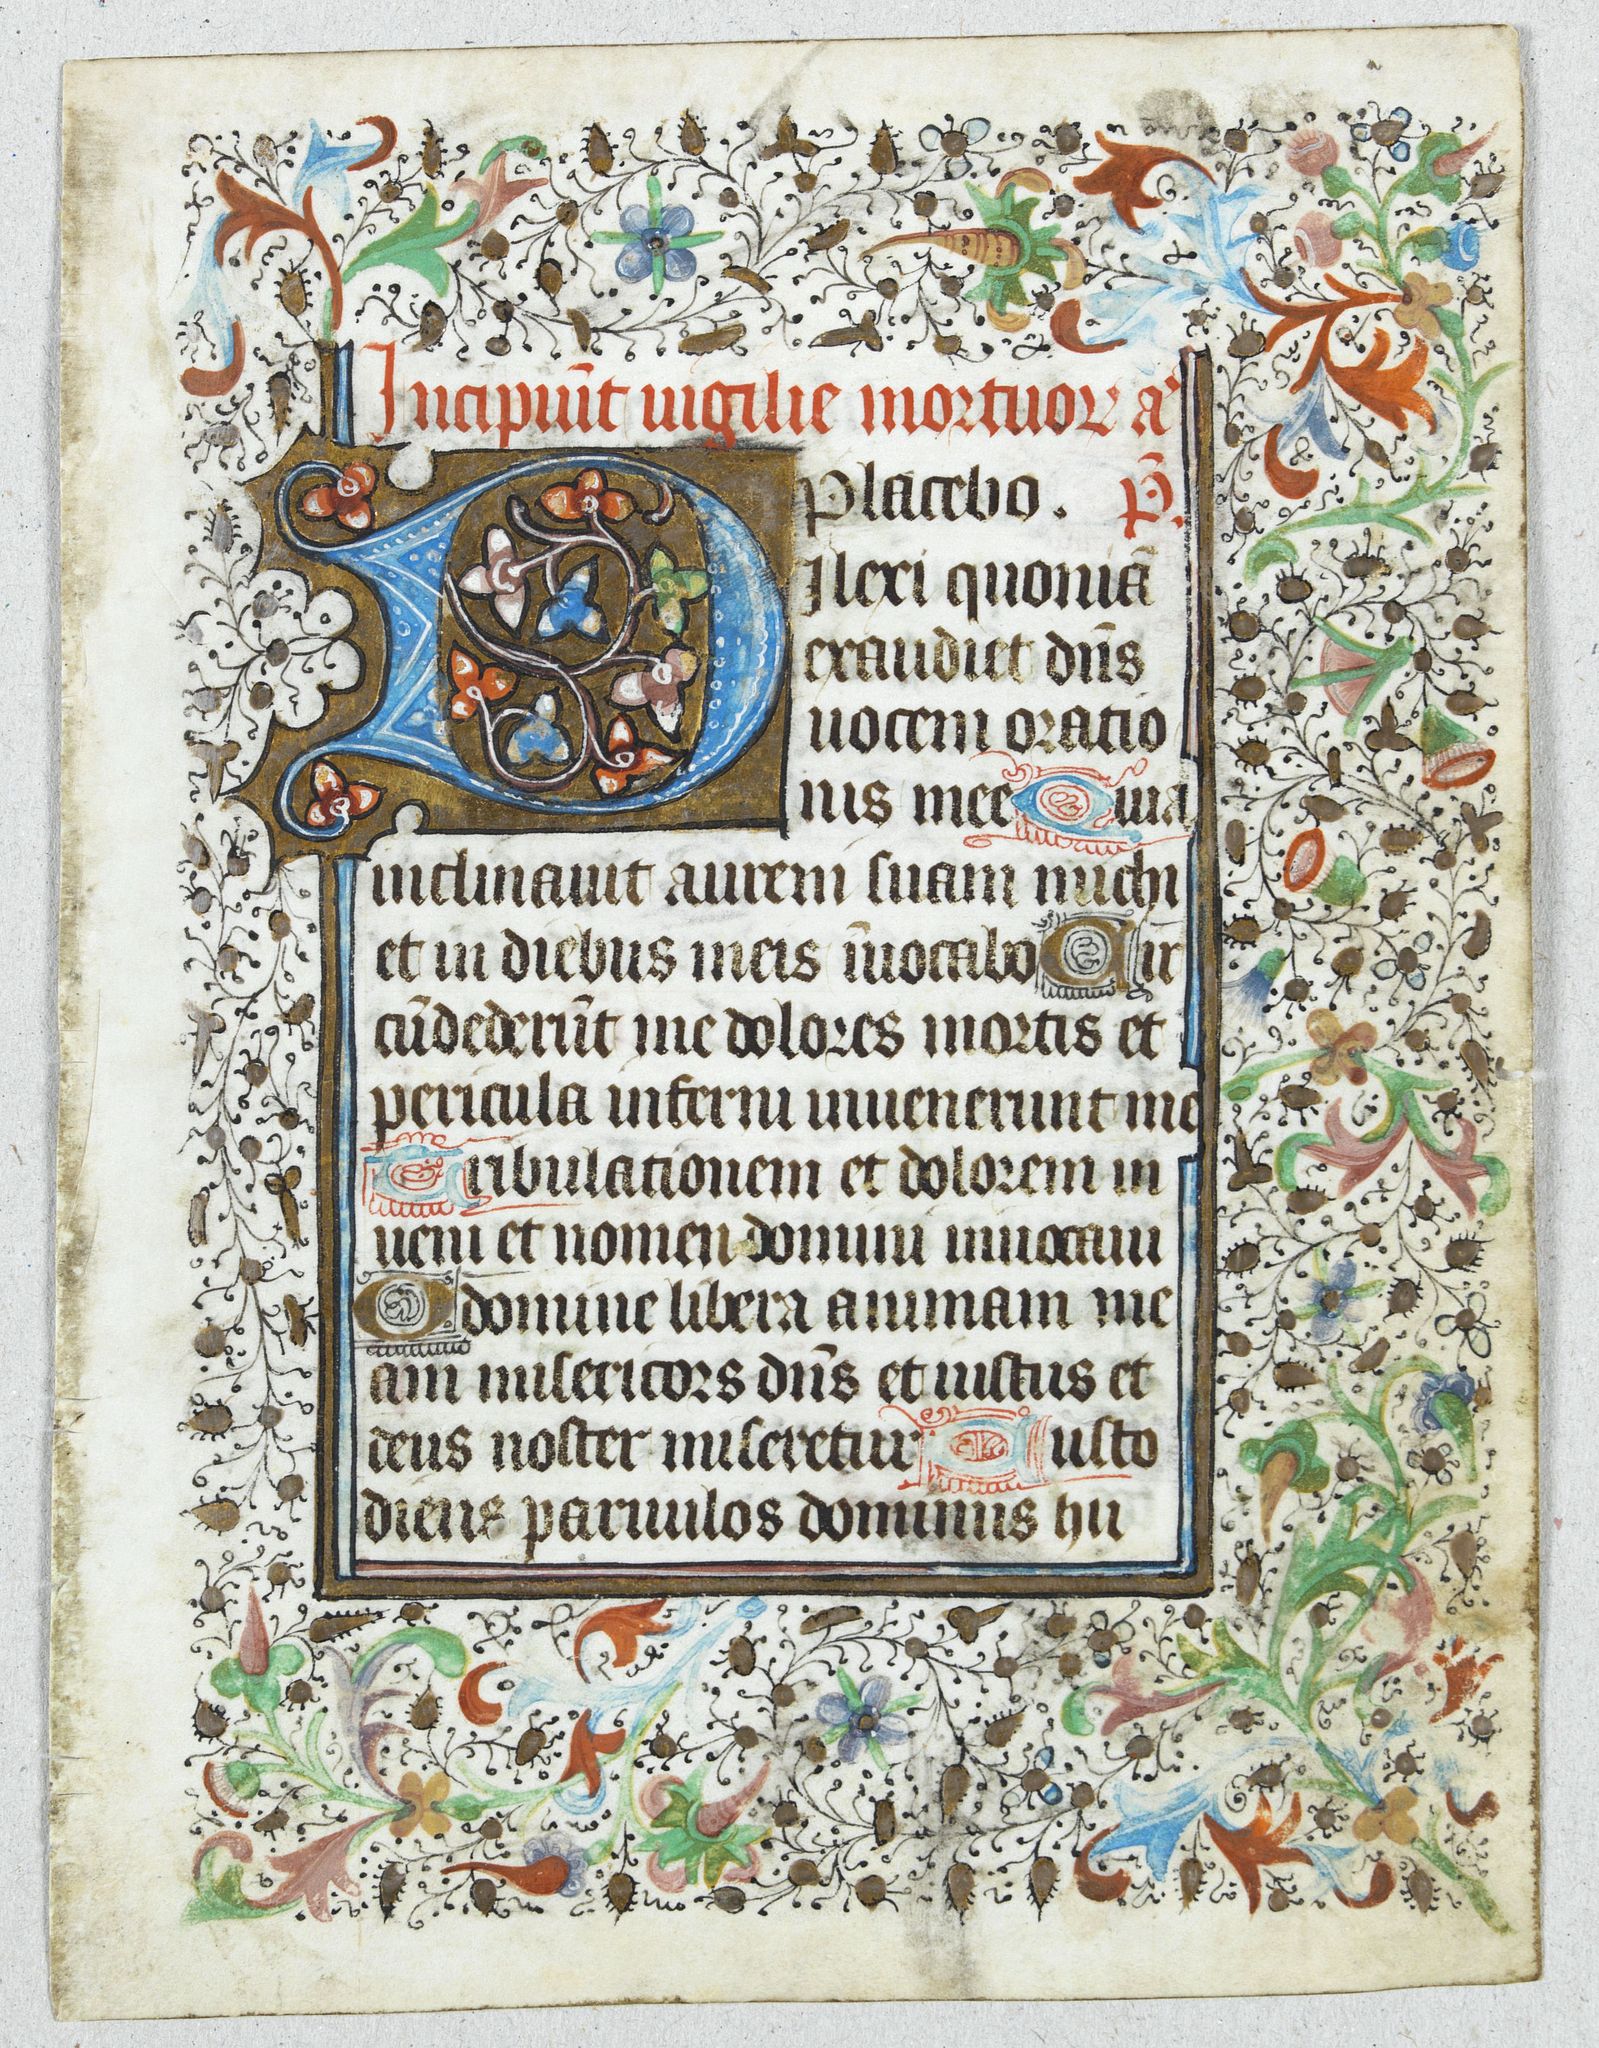 Incipiūt uigilie mortuoꝝ aᵃ
Placebo. p̄s
Dilexi quoniā
exaudiet dn̄s
uocem oratio
nis mee Quia
inclinauit aurem suam michi
et in diebus meis īuocabo Cir
cūdederūt me dolores mortis et
pericula inferni inuenerunt me
Tribulationem et dolorem in
ueni et nomen domini inuocaui
O domine libera animam me
am misericors dn̄s et iustus et
deus noster miseretur Custo
diens paruulos dominus hu